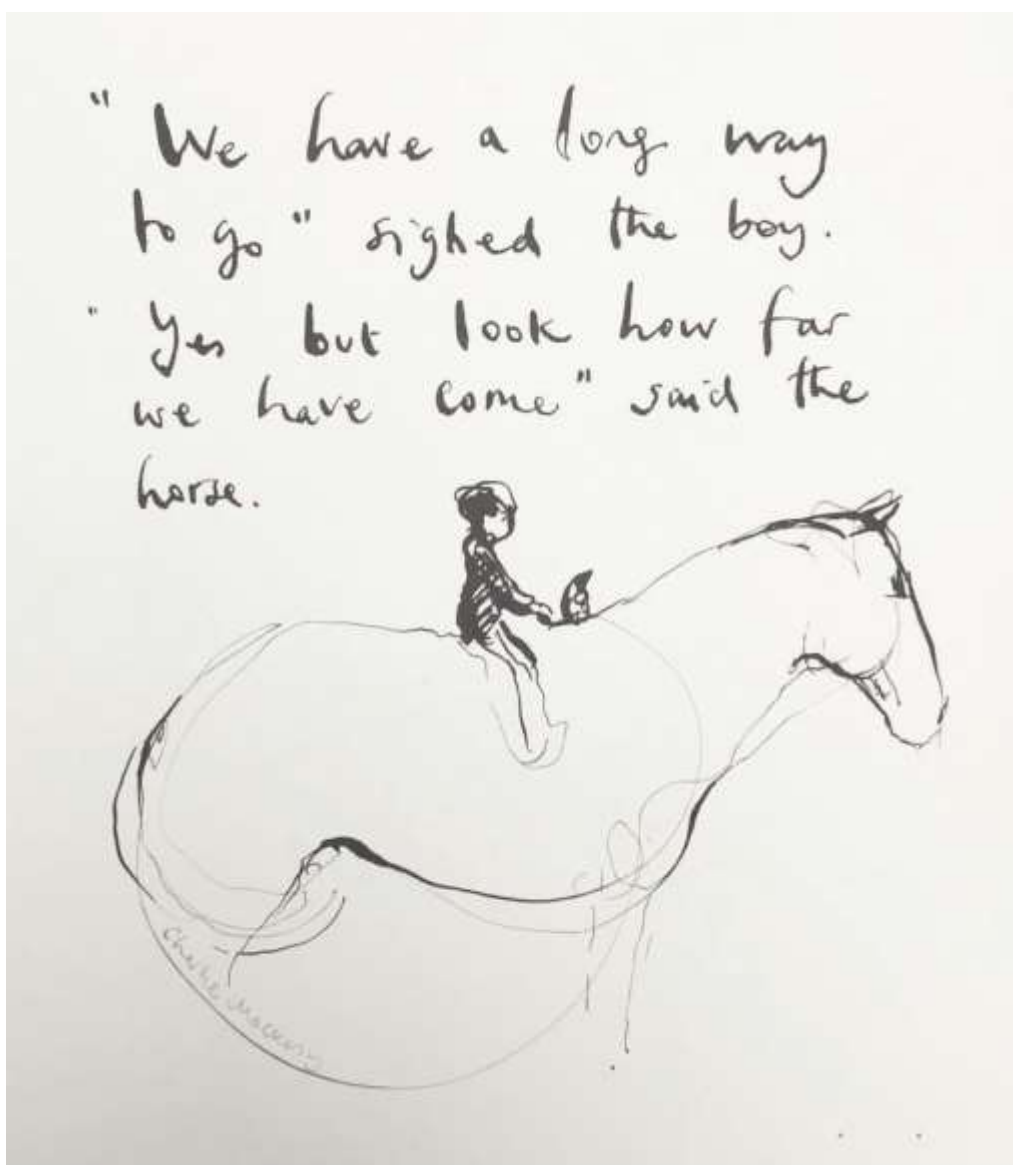 " We have a long way
to go" sighed the boy.
" Yes but look how far
we have come" said the
horse.
Charlie Mackesy